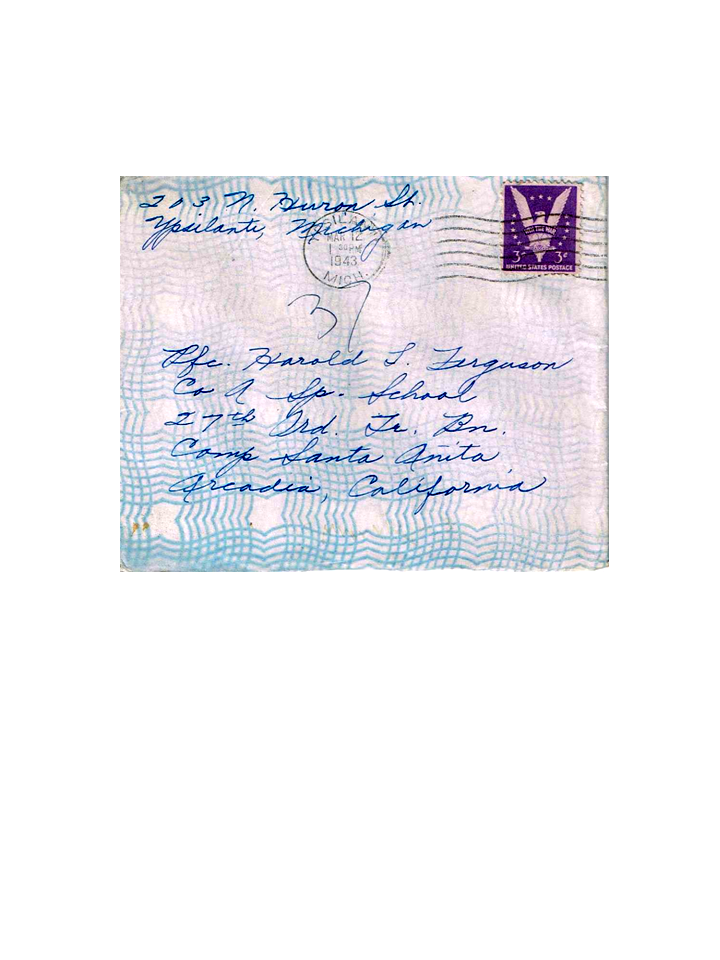 203 N. Huron St.
Ypsilanti, Michigan
YPSILANTI
MAR 12
1 30PM
1943
MICH.
WIN THE WAR
3¢ 3¢
UNITED STATES POSTAGE
37
Pfc. Harold T. Ferguson
Co A Sp. School
27th Ord. Tr. Bn.
Camp Santa Anita
Arcadia, California